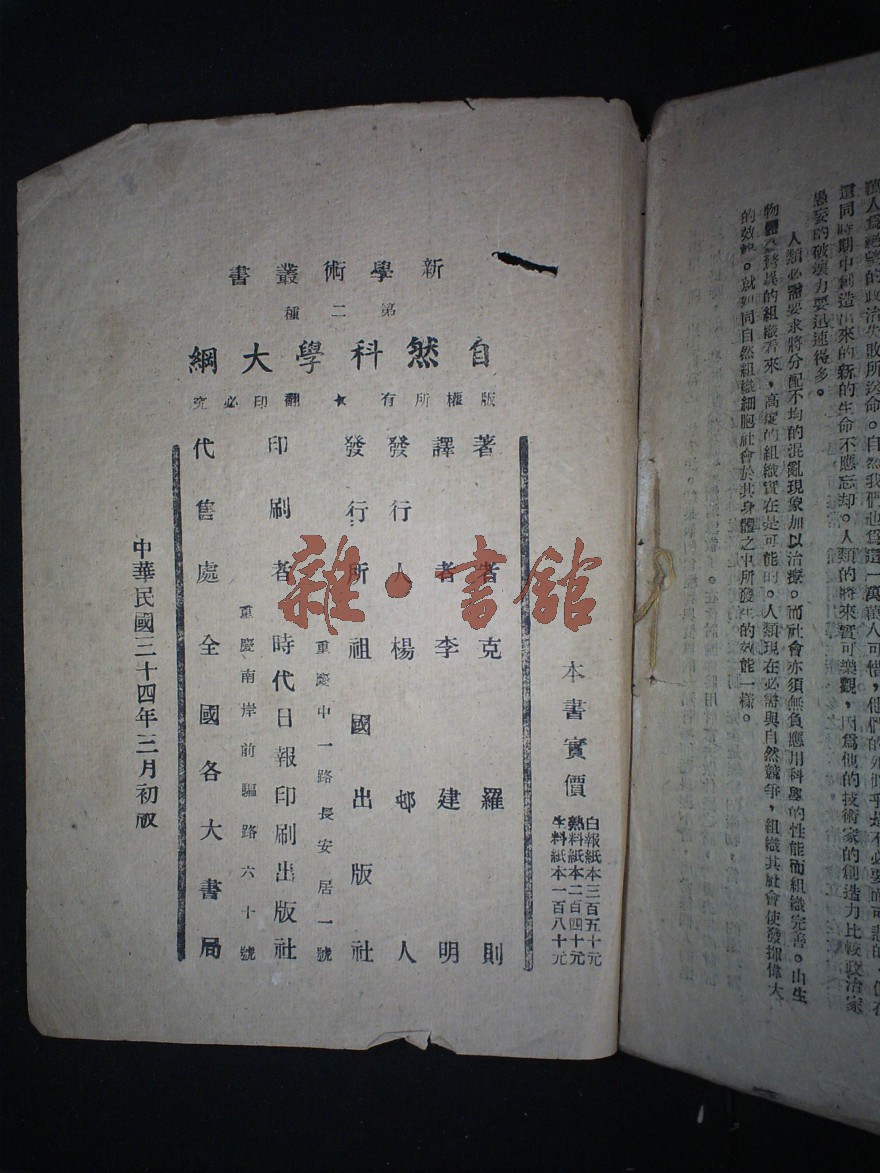 新學術叢書
第二種
自然科學大綱
版權所有★翻印必究
本書實價
白報紙本三百五十元
熟料紙本二百四十元
生料紙本一百八十元
著者克羅則
譯者李建明
發行人楊邨人
發行所祖國出版社
重慶中一路長安居一號
印刷者時代日報印刷出版社
重慶南岸前驅路六十號
代售處全國各大書局
中華民國三十四年三月初版
雜·書館
還同時期中創造出來的新的生命不應忘却。人類的將來實可樂觀,因爲他的技術家的創造力比較政治家
愚妄的破壞力要迅速得多。
人類必需要求將分配不均的混亂現象加以治療。而社會亦須無負應用科學的性能而組織完善。由生
驚異的組織看來,高度的組織實在是可能的。人類現在必需與自然競爭,組織其社會使發揮偉大
的效能。就如同自然組織細胞社會於其身體之中所發生的效能一樣。